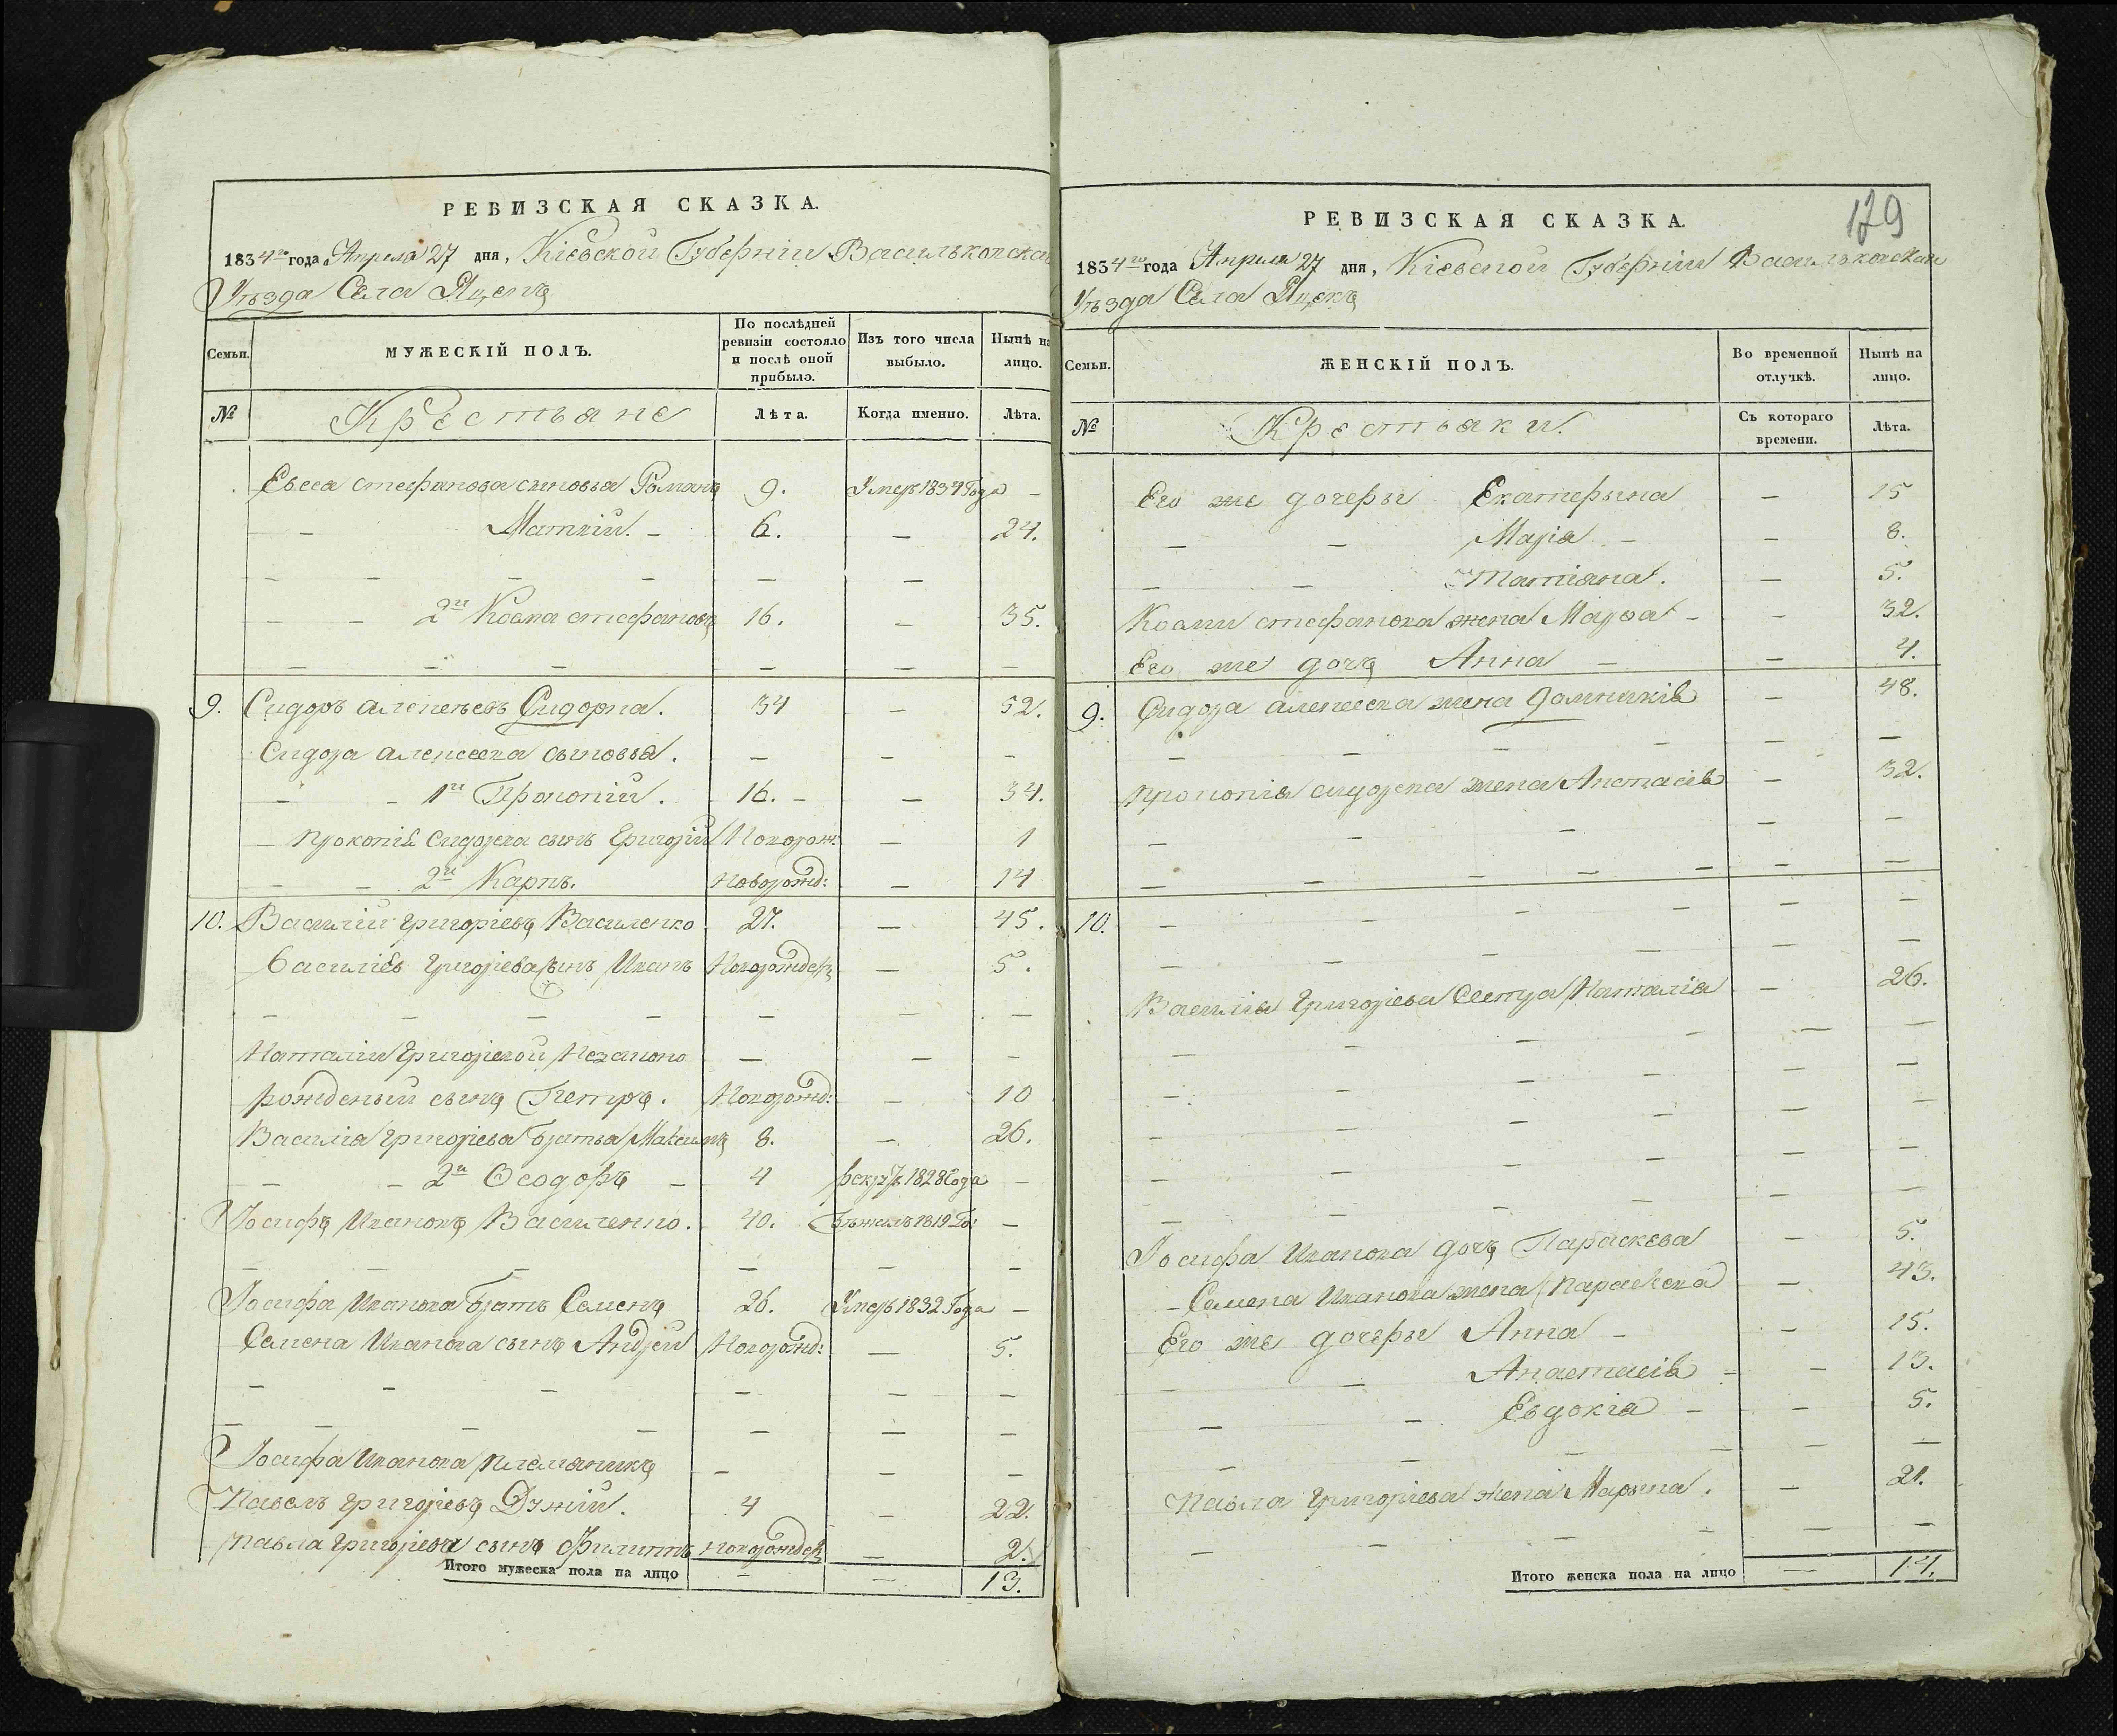 РЕВИЗСКАЯ СКАЗКА.
1834го года Апреля 27 дня, Кіевской Губерніи Васильковска
Уѣзда Села Яцекъ
Семьи. МУЖЕСКІЙ ПОЛЪ. По послѣдней ревизіи состояло и послѣ оной прибыло. Изъ того числа выбыло. Нынѣ на лицо.
№ Крестьяне Лѣта. Когда именно. Лѣта.
Евсея стефанова сыновья Романъ 9. Умеръ 1834 Года —
— Маткій. — 6. — 24.
— — — — — —
— — 2й Косма стефановъ 16. — 35.
— — — — — —
9. Сидоръ алексеевъ Сидорка. 34 — 52.
Сидора алексеева сыновья. — — —
— — 1й Прокопій. 16. — — 34.
— Прокопія Сидорева сынъ Григорій Новорож: — 1
— — 2й Карпъ. Новорожд: — 14
10. Василій Григоріевъ Василенко 27. — 45.
Василія Григоріева Сынъ Иванъ Новорожден — 5.
— — — — — — —
Наталіи Григоріевой Незаконо — — —
рожденый сынъ Петръ. Новорожд: — 10
Василія Григоріева Братья Максимъ 8. — 26.
— — 2й Ѳеодоръ — 4 рекрут 1828 Года —
Іосифъ Ивановъ Василенко. 40. Бѣжалъ 1819 Го: —
— — — — — —
Іосифа Иванова Братъ Семенъ 26. Умеръ 1832 Года —
Семена Иванова сынъ Андрей Новорожд: — 5.
— — — — — —
— — — — — — —
Іосифа Иванова племянникъ — — —
Павелъ Григоріевъ Дужій. 4 — 22.
Павла Григоріева сынъ Филиппъ новорожден — 2.
Итого мужеска пола на лицо — — 13.
179
РЕВИЗСКАЯ СКАЗКА.
1834го года Апреля 27 дня, Кіевской Губерніи Васильковскаи
Уѣзда Села Яцекъ
Семьи. ЖЕНСКІЙ ПОЛЪ. Во временной отлучкѣ. Нынѣ на лицо.
№ Крестьяки. Съ котораго времени. Лѣта.
Его же дочеры Екатерына — 15
— — Марія — — 8.
— — Татіана. — 5.
Космы стефанова жена Марфа — — 32.
Его же дочъ Анна — — 4.
9. Сидора алексеева жена Домникія — 48.
— — — — — —
Прокопія сидорева жена Анастасія — 32.
— — — — —
— — — — — — —
10. — — — — —
— — — — — —
Василія Григоріева Сестра Наталія — 26.
— — — — —
— — — — —
— — — — —
— — — — —
— — — — —
Іосифа Иванова дочъ Параскева — 5.
— Семена Иванова жена Параскева — 43.
Его же дочеры Анна — — 15.
— — Анастасія — — 13.
— — Евдокія — — 5.
— — — — — —
Павла Григоріева жена Марына. — 21.
— — — — — —
Итого женска пола на лицо — 14.